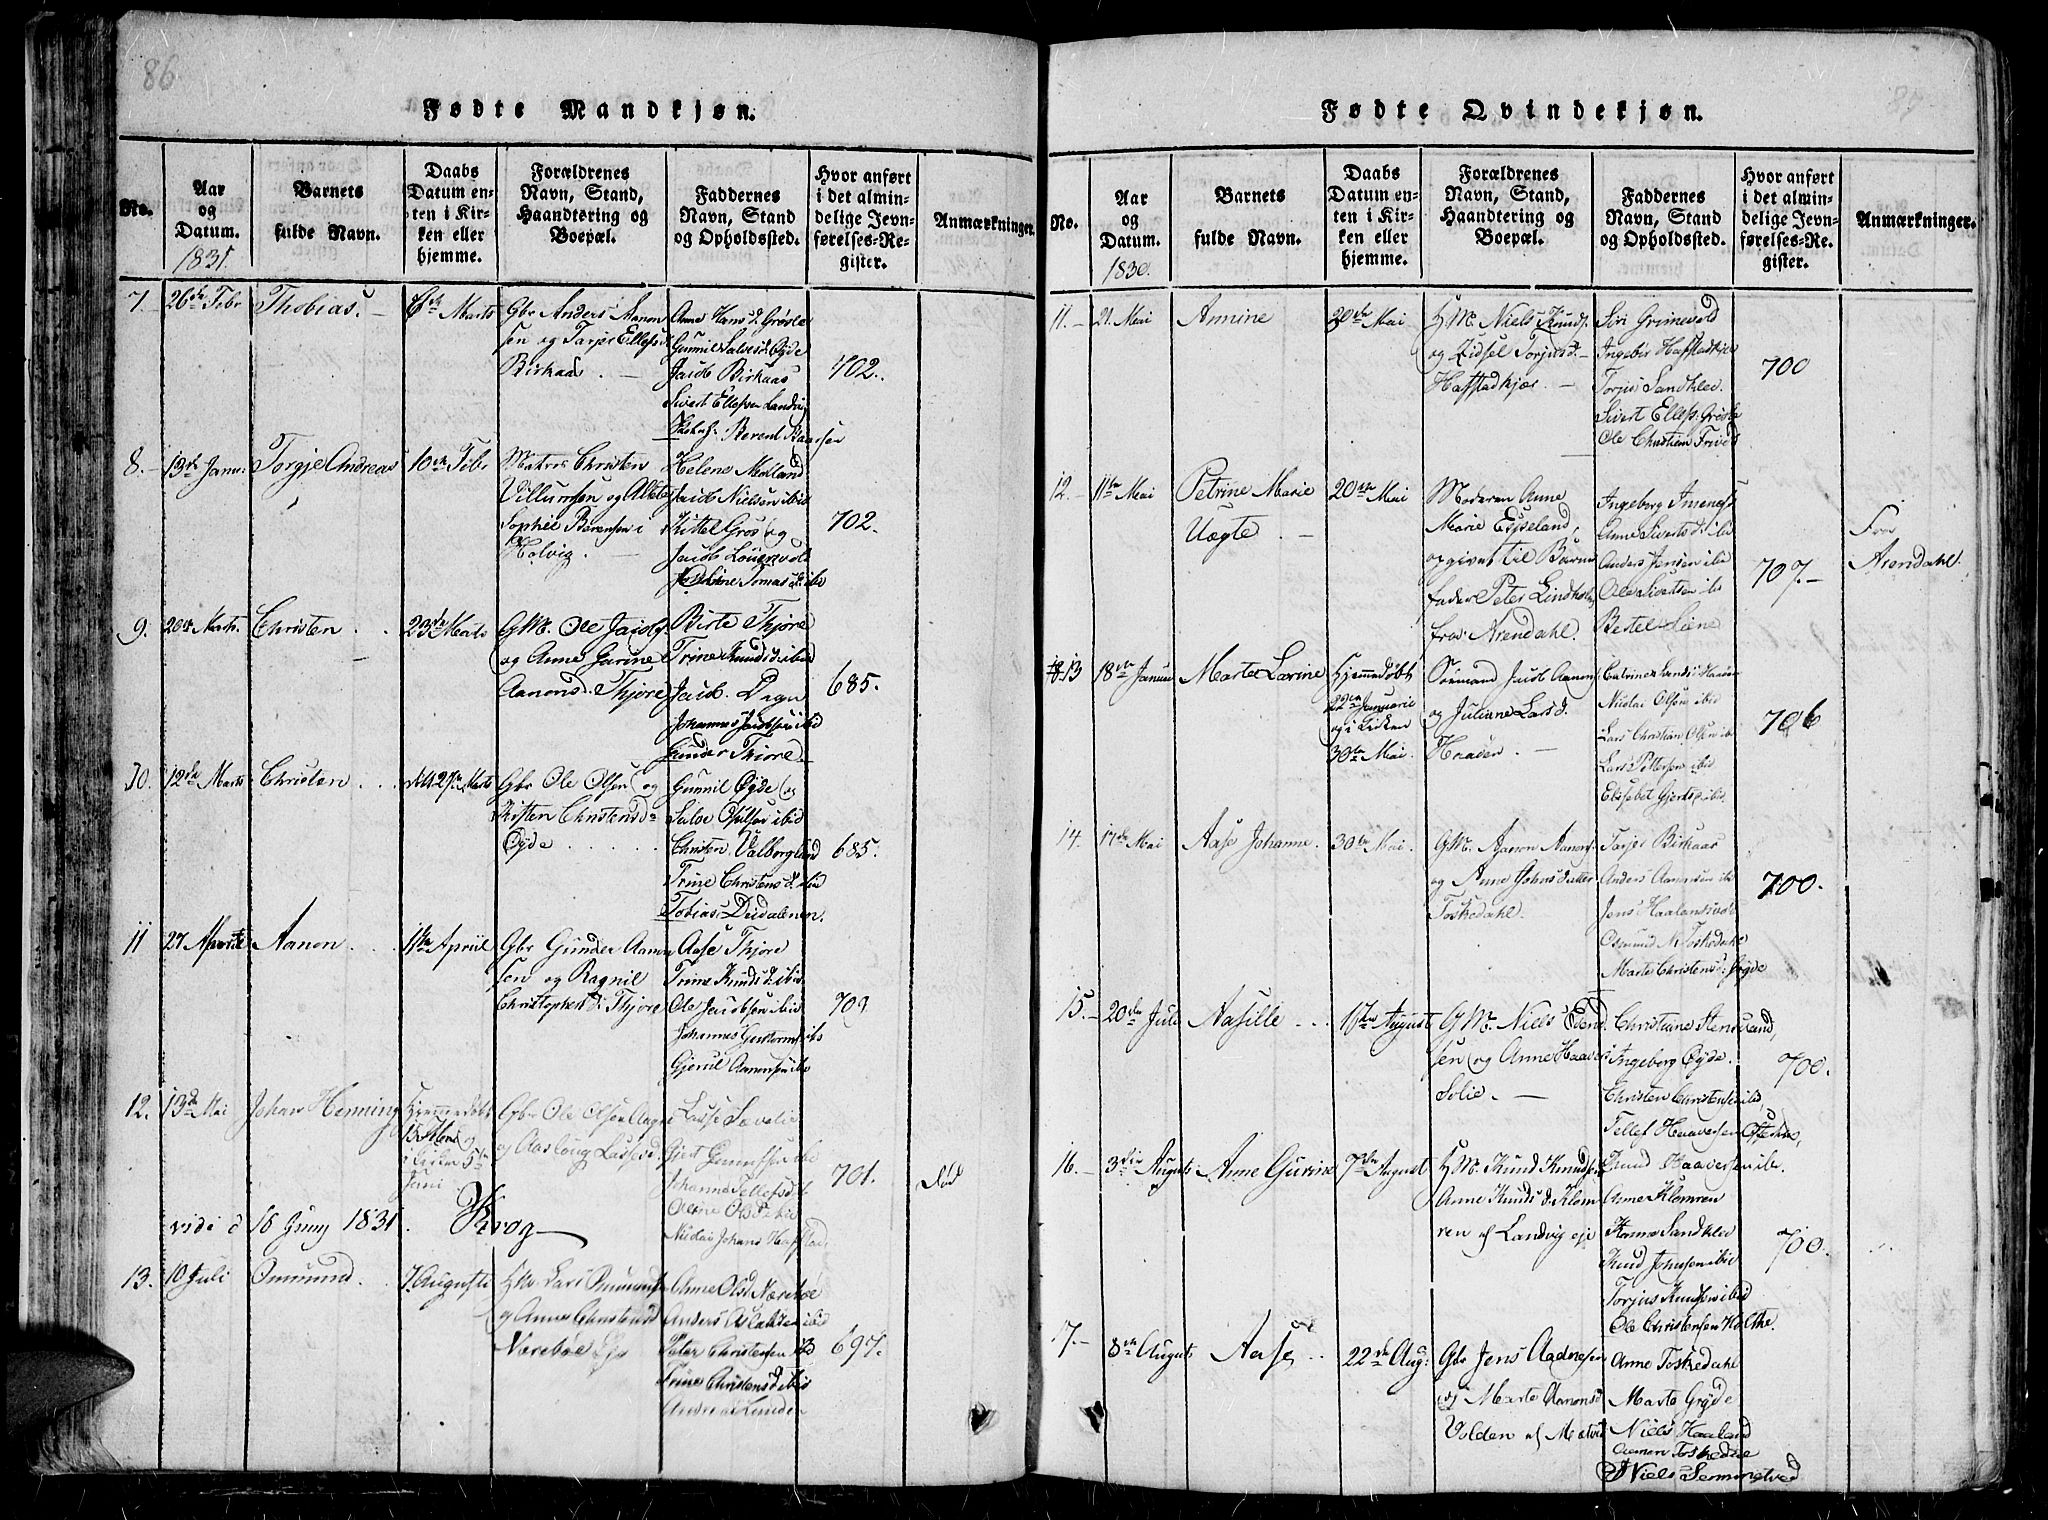 86
Fødte Mandkjøn.
No.
Aar og Datum. 1831.
Barnets fulde Navn.
Daabs Datum enten i Kirken eller hjemme.
Forældrenes Navn, Stand, Haandtering og Boepæl.
Faddernes Navn, Stand og Opholdssted.
Hvor anført i det almindelige Jevnførelses-Register.
Anmærkninger.
7. 26de Febr Thobias. 6te Marts
Gbr Anders Aanon
sen og Tarjer Ellefsd.
Birkaas.
Anne Hansd. Grøsle
Gunnil Salvesd. Øyde
Jacob Birkaas
Sivert Ellefsen Landvig
Berent Baarsen
402.
8. 13de Janu: Torgje Andreas 10de Febr
Matros Christen
Villumsen og
Sophie Berensen i
Holvig.
Helene Morland
Jacob Nielsen ibid
Kittel Grøs og
Jacob
Tomasd. ibid
702.
9. 20de Marts. Christen 23de Marts
GM. Ole Jacobs.
og Anne Gurine
Aanonsd. Thjøre
Birte Thjøre
Trine Knudsd. ibid
Jacob Dagn
Johannes Jacobsen ibid
Gunder Thjøre
685.
10. 12de Marts Christen 27. Marts
Gbr Ole Olsen og
Kirsten Christensd
Øyde
Gunnil Øyde og
Salve Osulfsen ibid
Christen Valborgland
Trine Christensd. ibid
Tobias Dydalenen.
685.
11 27 Aanon 11te Apriil
Gbr Gunder Aanon
sen og Ragnil
Christophersd. Thjøre
Aase Thjøre
Trine Knudsd. ibid
Ole Jacobsen ibid
Johannes
Gjerul Aanonsen ibid
709
12. 13de Mai Johan Henning Hjemmedøbt
15
i Kirken 5te
Juni
Gbr Ole Olsen
og Aasloug Lassesd.
Lasse Sævelie
Gjert Gunnersen ibid
Johanne Tellefsd.
Nicolai Johans Hafstad
701.
død
vide d 16 Juny 1831. Krog
13. 10 Juli Osmund. 7 Auguste
HM. Lars Osmunds
og Anne
Nærebøe Eje
Anne Olsd Nærebøe
Anders Aslaksen ibid
Peter Christensen ibid
Trine Christensd. ibid
697.
87
Fødte Qvindekjøn.
No.
Aar og Datum. 1830.
Barnets fulde Navn.
Daabs Datum enten i Kirken eller hjemme.
Forældrenes Navn, Stand, Haandtering og Boepæl.
Faddernes Navn, Stand og Opholdssted.
Hvor anført i det almindelige Jevnførelses-Register.
Anmærkninger.
11. 21. Mai Annine 20de Mai
HM. Niels Knuds.
og Zidsel Torjusd.
Hafstadkjær.
Siri Grimevold
Ingebor Hafstadkjær
Torjus Sandklev.
Sivert Ellefs: Grøsle
Ole Christian Trived
700
12. 11te Mai Petrine Marie
Uægte 20de Mai
Moderen Anne
Marie Esseland,
opgivet til Barne
fader Peter Lindholm
fra Arendahl.
Ingeborg
Anne Sivertsd. ibid
Anders Jensen ibid
Ole Sivertsen ibid
Bertel Leine
707.
Fra
Arendahl.
13 18de Januar Marte Larine Hjemmedøbt
22de Januarie
og i Kirken
30te Mai.
Sømand Jacob Aanons.
og Juliane Larsd.
Haaven.
Catrine Svends Haaven
Nicolai Olsen ibid
Lars Christian Olsen ibid
Lars Pettersen ibid
Elisebet Gjertsd. ibid.
706
14. 17de Mai Aase Johanne. 30te Mai.
GM. Aanon Aanons.
og Anne Johnsdatter
Toskedahl.
Tarjer Birkaas
Anders Aanonsen ibid
Jens Haalandsvold
Osmund N. Toskedahl
Marte Christensd: Grøde
700.
15. 20de Juli Aasille 1ste August
GM. Niels Evend
sen og Anne Haavers
Solie.
Christiane Steneland,
Ingeborg Øyde.
Christen Christensen ibid,
Tellef Haaversen Østerhus,
700.
16. 3die August Anne Gurine 7de August
HM. Knud Knudsen
Anne Knudsd. Klom
ren af Landvig eje
Knud Haaversen ib.
Anne Klomren
Hanna Sandklev
Knud Johnsen ibid
Torjus Knudsen ibid
Ole Christensen Holte.
700.
17. 8de August Aase 22de Aug:
Gbr Jens Aadnesen
og Marte Aanonsd
Volden af
Anne Toskedahl
Marte Grøde
Niels Haaland
Aanon Toskedal
Niels Semmingtved